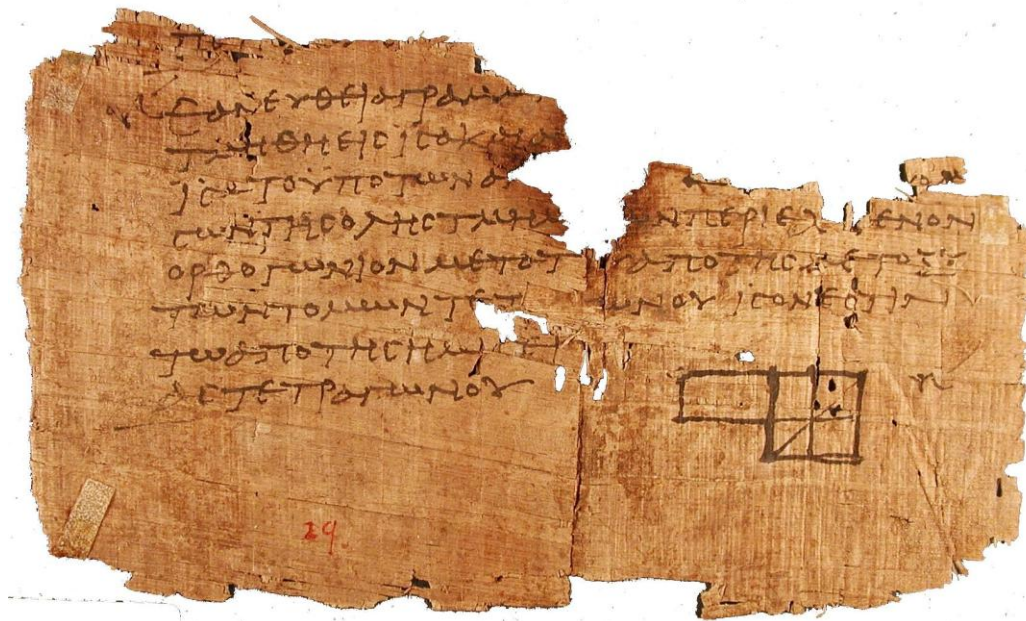 ΕΑΝΕΥΘΕΙΑΓΡΑΜΜ
ΤΜΗΘΗΕΙCΙCΑΚΑΙΑ
ΙCΑΤΟΥΠΟΤΩΝΑ
CΩΝΤΗCΟΛΗCΤΜΗΜ ΩΝΠΕΡΙΕΧ ΜΕΝΟΝ
ΟΡΘΟΓΩΝΙΟΝΜΕΤΑΤ ΑΠΟΤΗCΜΕΤΟΞΥ
ΤΩΝΤΟΜΩΝΤΕΤ ΩΝΟΥΙCΟΝΕCΤΙΝ
ΤΩΑΠΟΤΗCΗΜ ΕΙ
ΤΕΤΡΑΓΩΝΟΥ
29.